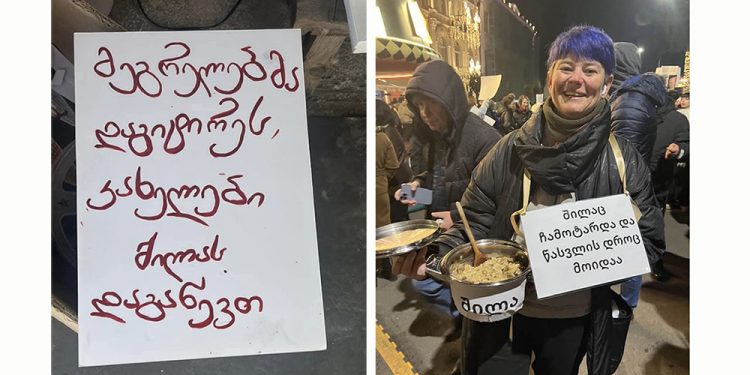 მეგრელებმა
დაგიტირეს,
კახელები
შილას
დაგაწევთ
შილაც
ჩამოტარდა და
წასვლის დროც
მოიდაა
შილა